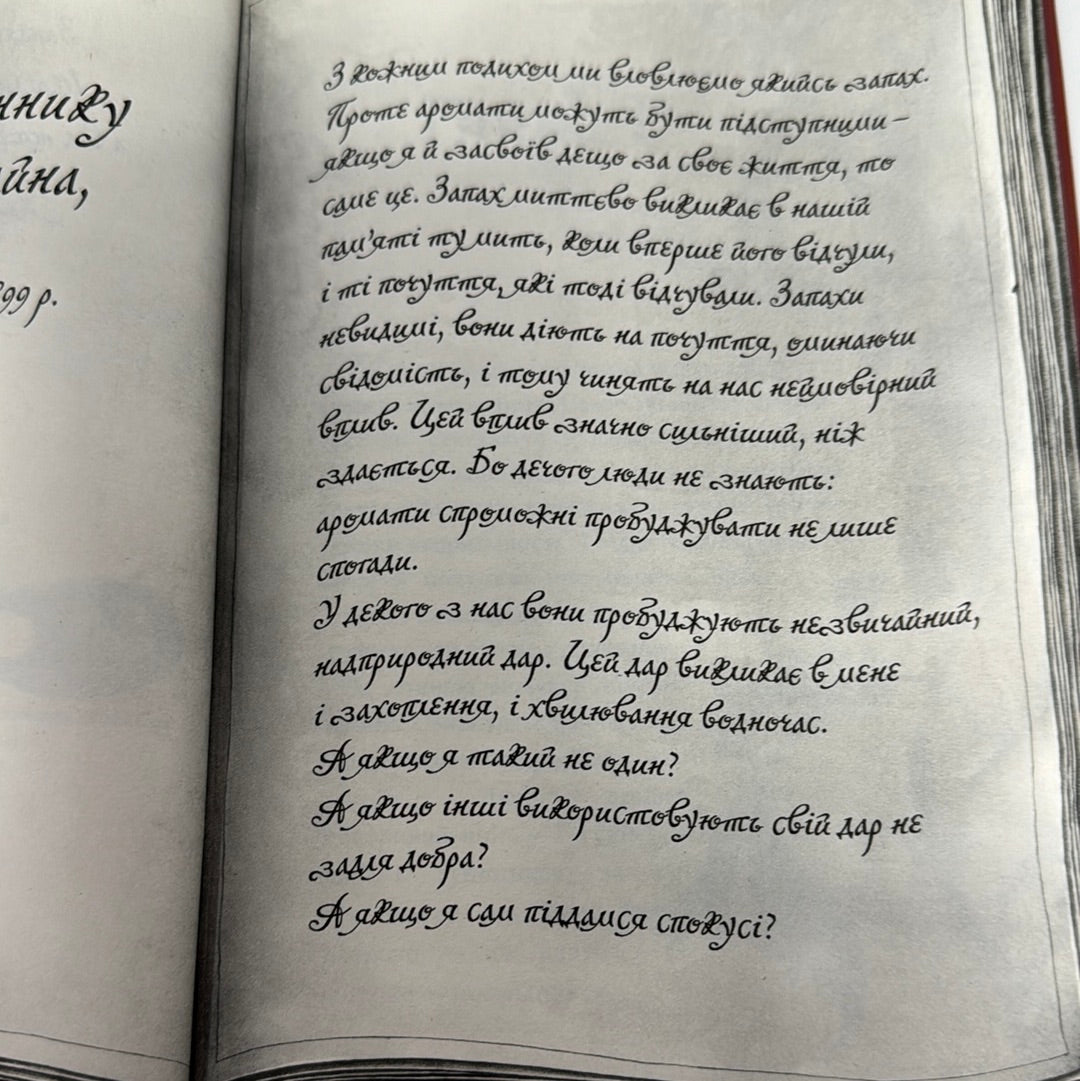 ннику
йна,
99 р.
З кожним подихом ми вловлюємо якийсь запах.
Проте аромати можуть бути підступними –
якщо я й засвоїв дещо за своє життя, то
саме це. Запах миттєво викликає в нашій
пам'яті ту мить, коли вперше його відчули,
і ті почуття, які тоді відчували. Запахи
невидимі, вони діють на почуття, оминаючи
свідомість, і тому чинять на нас неймовірний
вплив. Цей вплив значно сильніший, ніж
здається. Бо дечого люди не знають:
аромати спроможні пробуджувати не лише
спогади.
У декого з нас вони пробуджують незвичайний,
надприродний дар. Цей дар викликає в мене
і захоплення, і хвилювання водночас.
А якщо я такий не один?
А якщо інші використовують свій дар не
задля добра?
А якщо я сам піддамся спокусі?